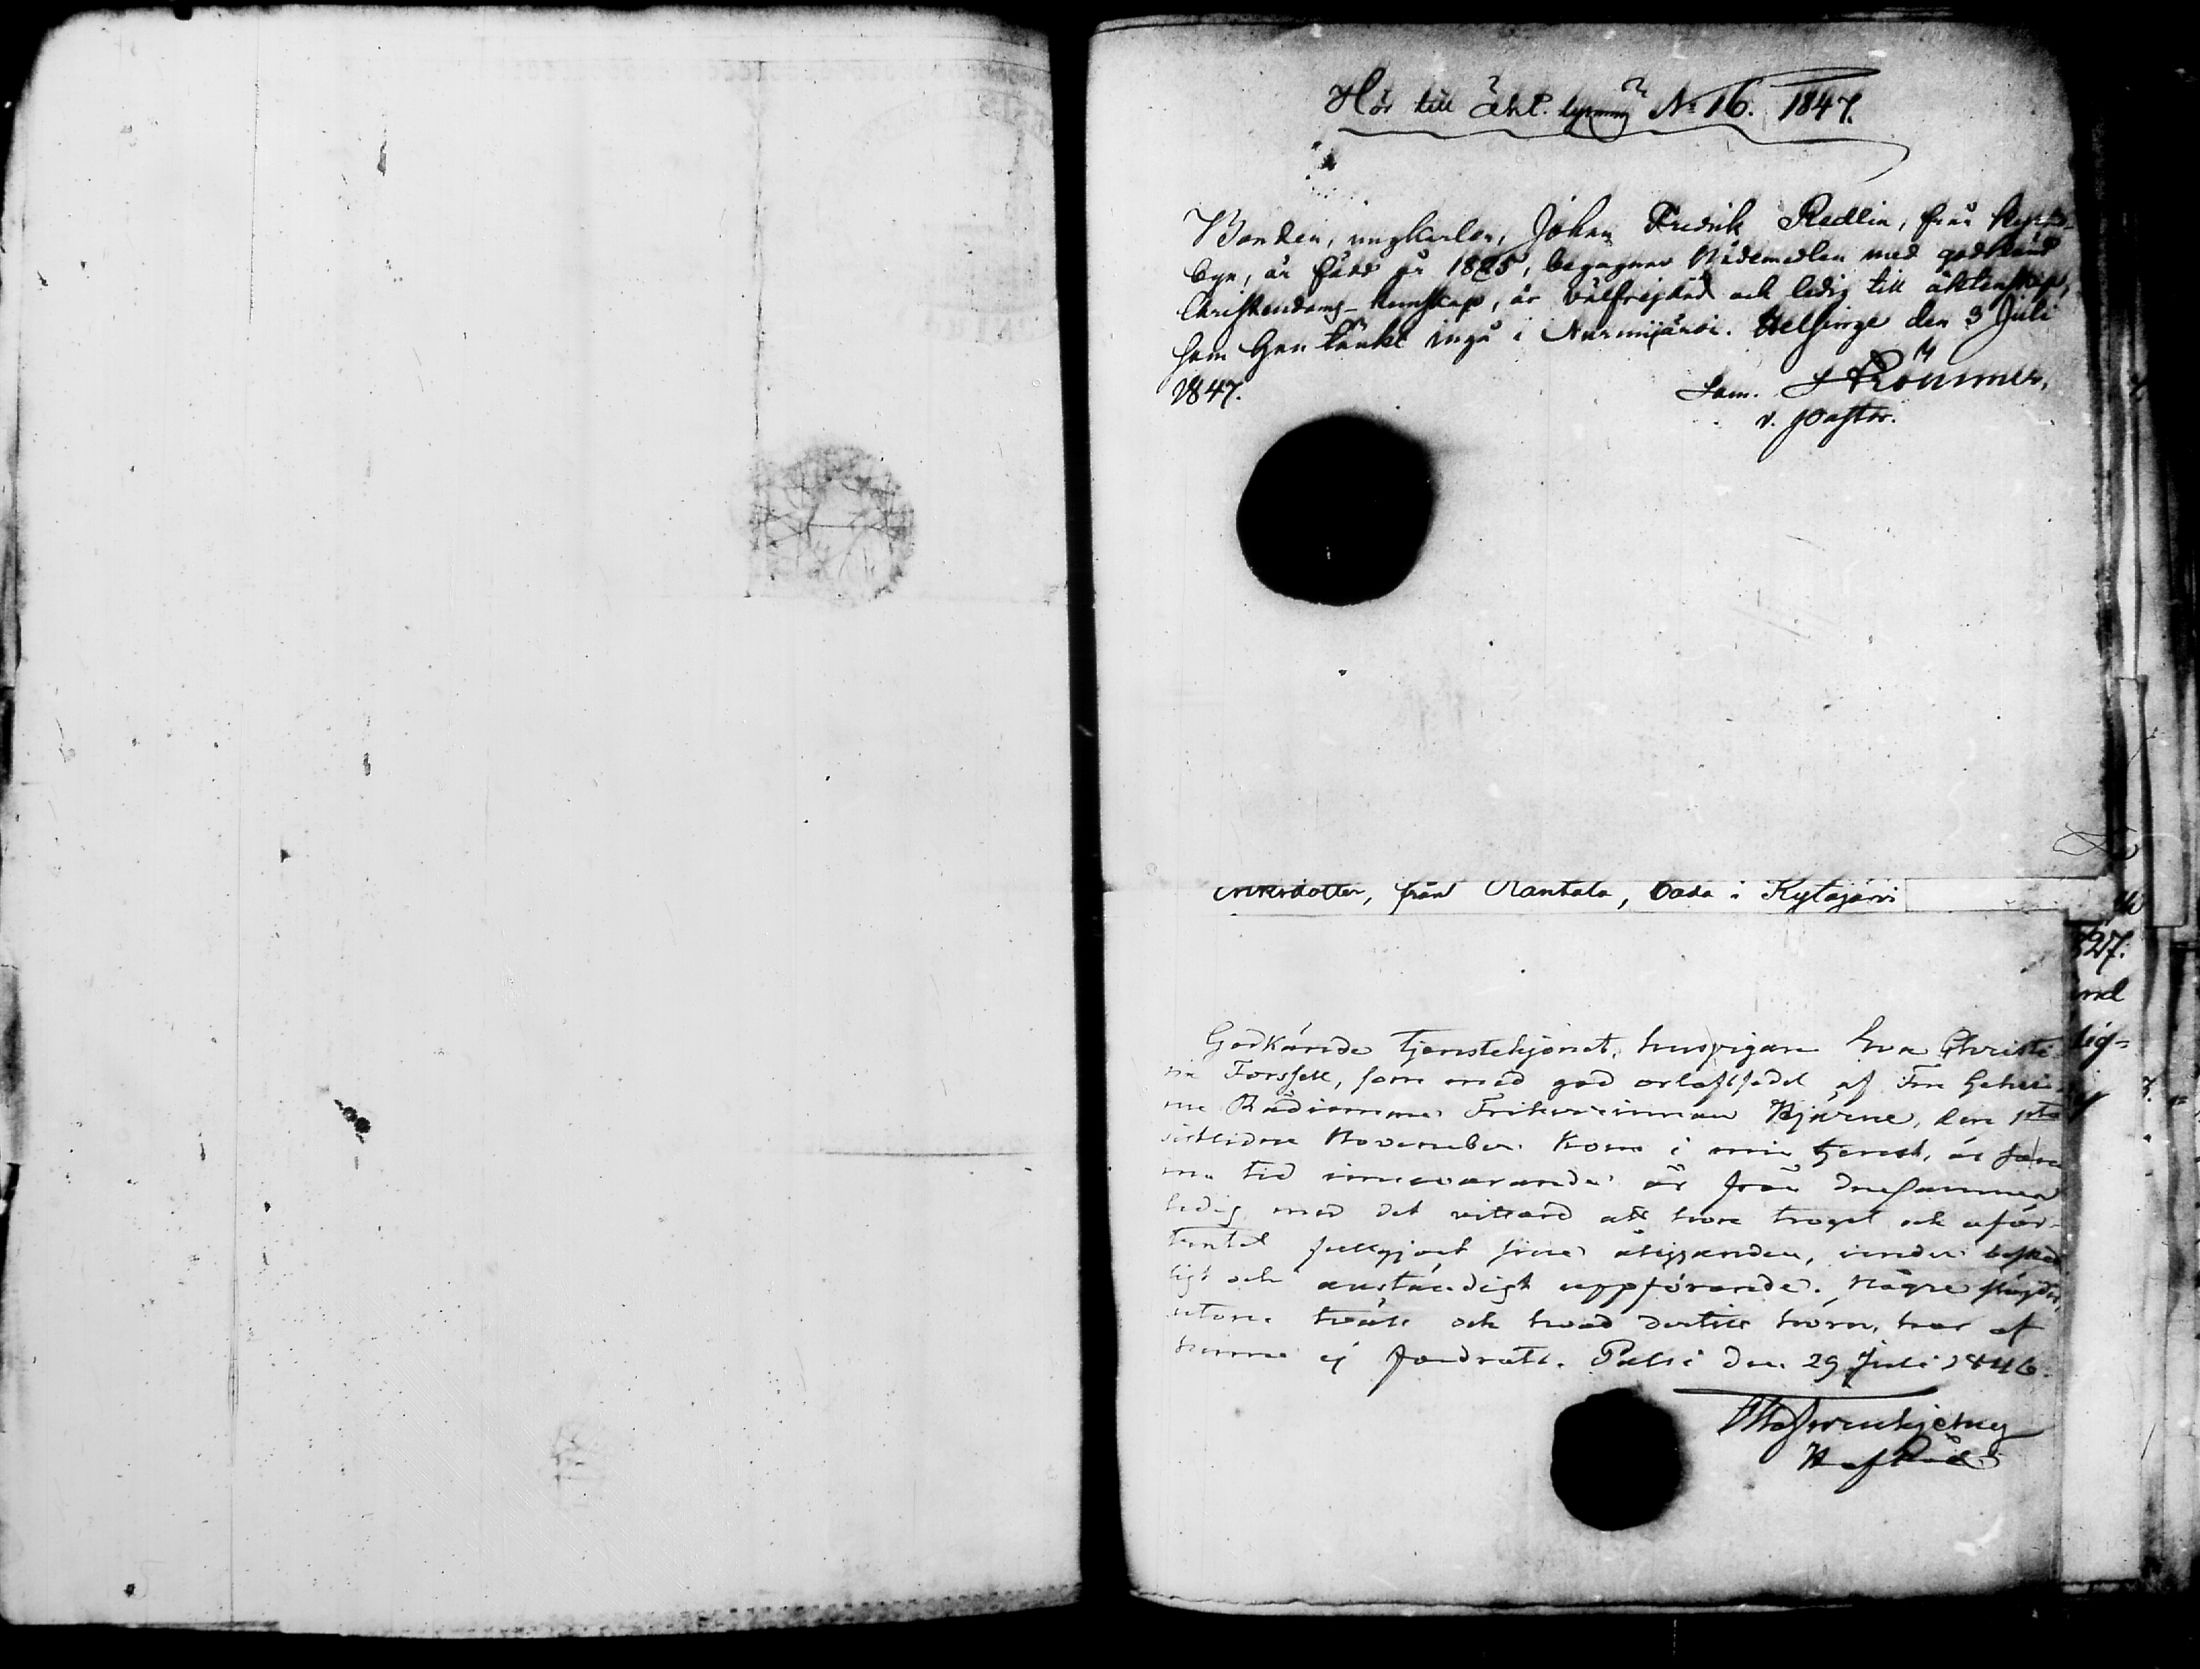 Hör till äkt. lysning No 16. 1847.
Bonden, ungkarlen, Johan Fredrik Redlin, från Kyrko-
byn, är född år 1825, begagnar Nådemedlen med godkänd
Christendoms-kunskap, är välfrejdad och ledig till äktenskap,
som han tänkt ingå i Nurmijärvi. Helsinge den 3 Juli
1847.
Sam.
v. Pastor.
dotter, från Rantala, båda i Kytäjärvi
Godkände tjenstehjonet, huspigan Eva Christi
na Forssell, som med god orlofssedel af Fru Gehei-
me Rådinnan Friherrinnan Hjärne, den 1sta
sistlidne November kom i min tjenst, är sam
ma tid innevarande år från densamma
ledig med det vittord att hon troget och oför-
tentet fullgjort sine åligganden, under beskед
ligt och anständigt uppförande. Några slögder,
utom och hvad dertill hörer, har af
henne ej fordrats. Palsi den 29 Juli 1846.
HofRåd
327.
lig=